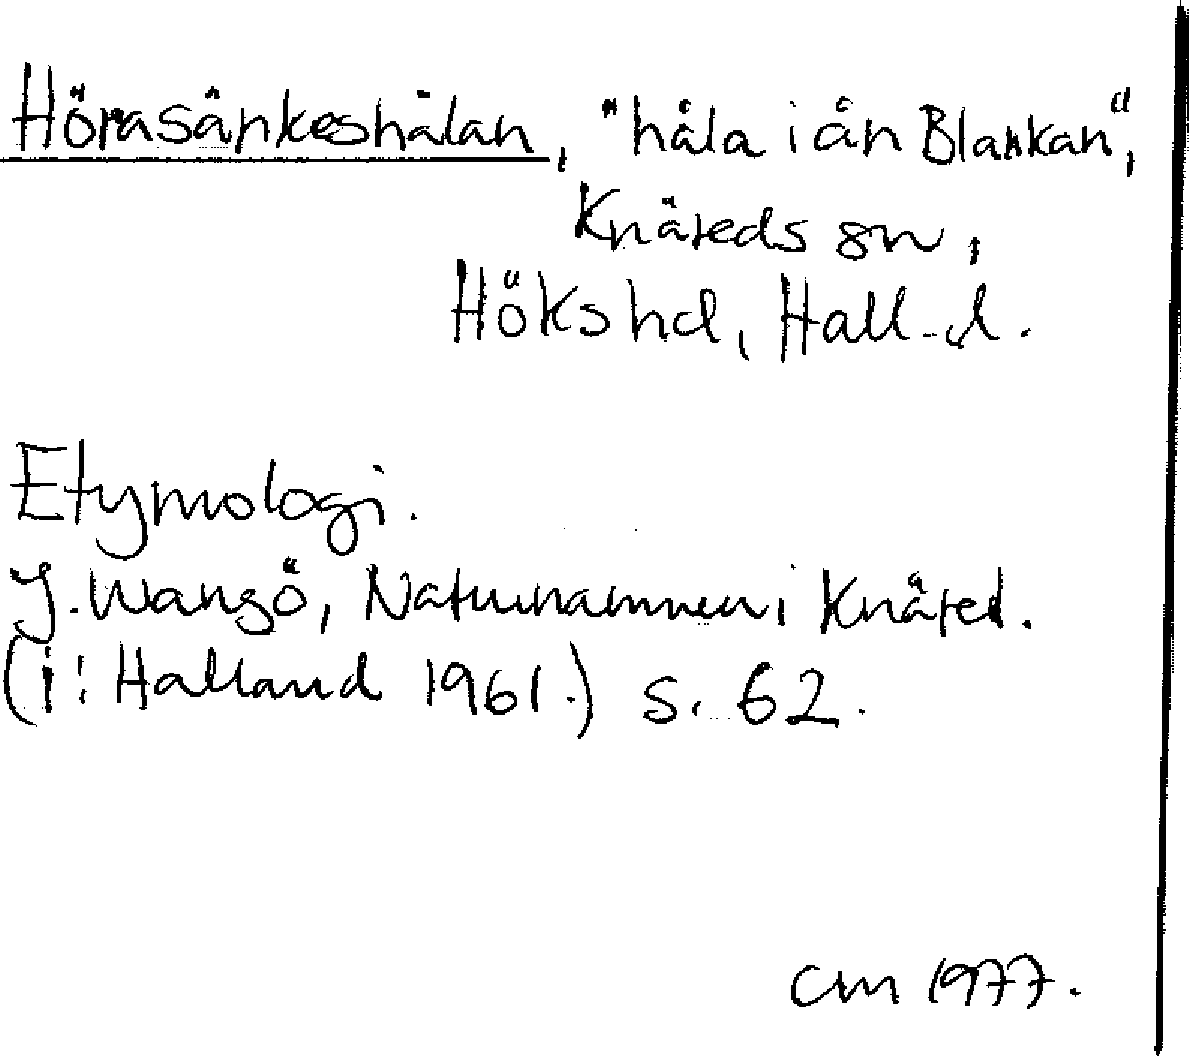 Hörasänkeshålan, "håla i ån Blankan",
Knäreds sn,
Höks hd, Hall. l.
Etymologi.
J. Wangö, Naturnamnen i Knäred.
(i: Halland 1961.) s. 62.
CM 1977.